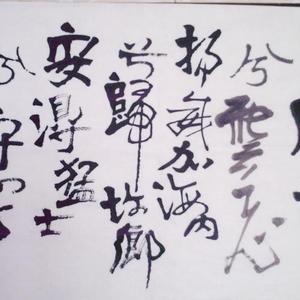 兮雲飛
揚威加海内
兮歸故鄉
安得猛士
兮守四